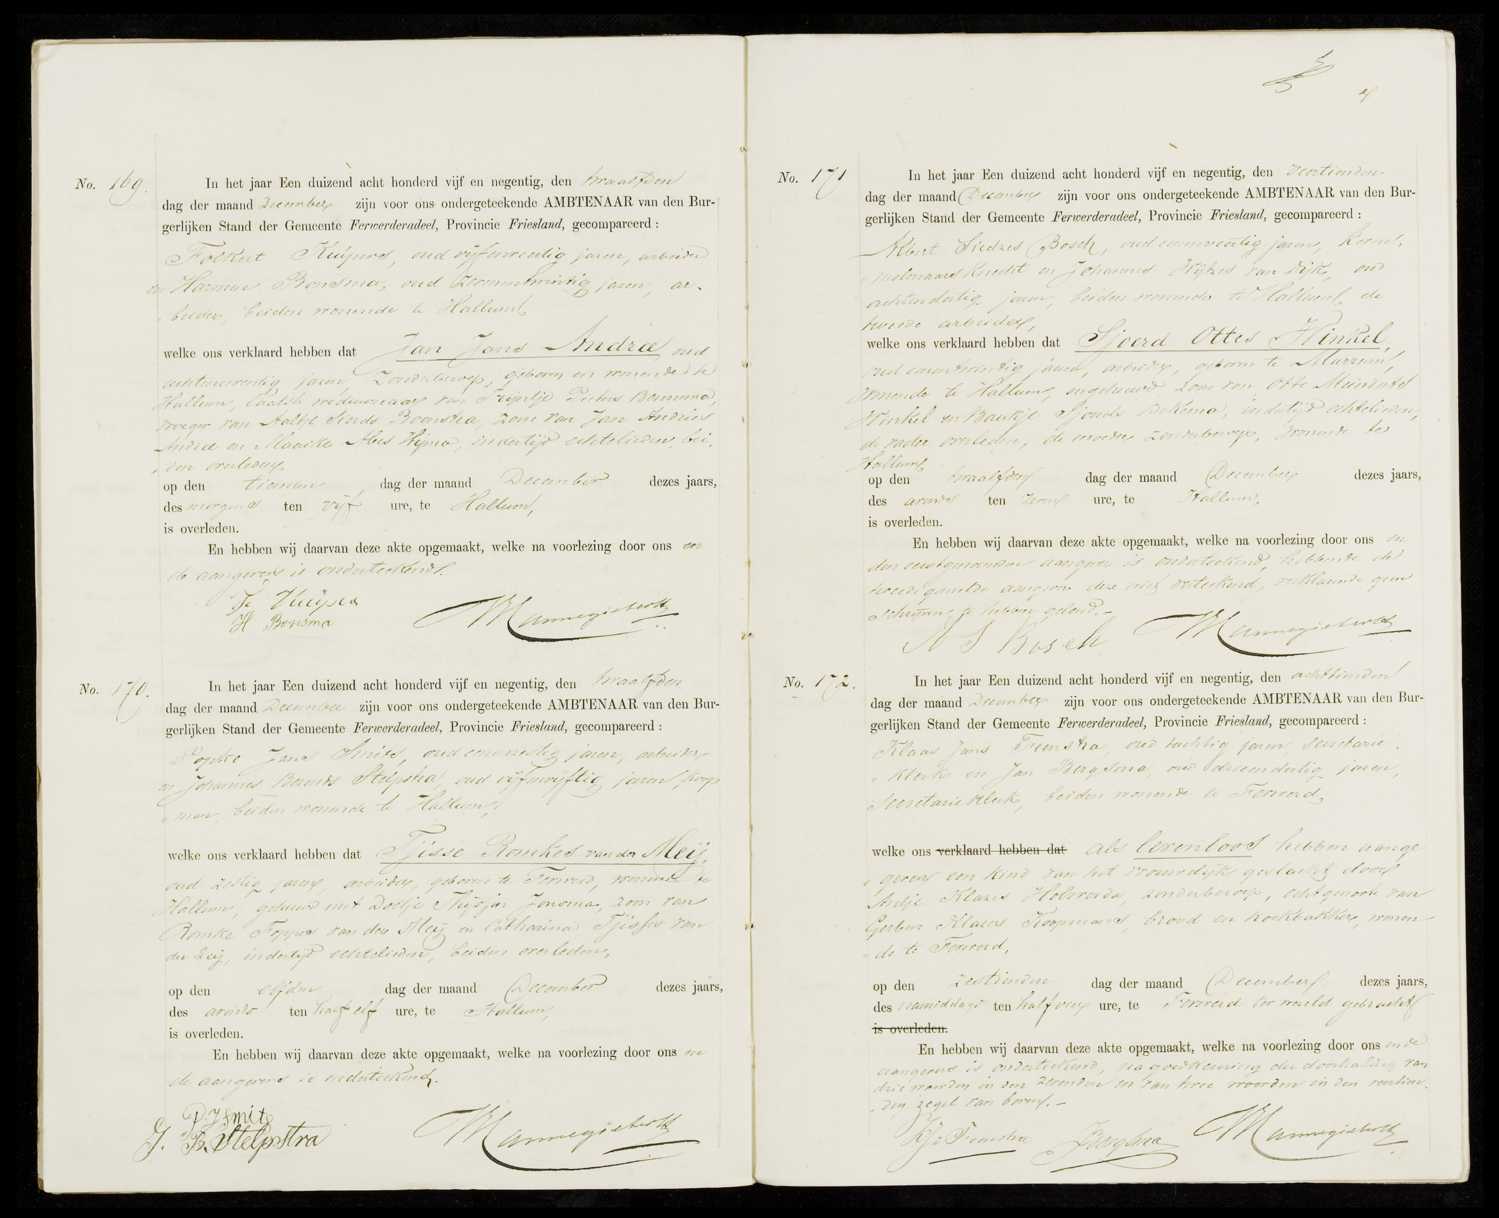 No. 169.
In het jaar Een duizend acht honderd vijf en negentig, den twaalfden
dag der maand December zijn voor ons ondergeteekende AMBTENAAR van den Bur-
gerlijken Stand der Gemeente Ferwerderadeel, Provincie Friesland, gecompareerd :
Folkert Kuipers, oud vijfenveertig jaren, arbeider
en Harmen Bonsma, oud jaren, ar-
beider, beiden wonende te Hallum,
welke ons verklaard hebben dat Jan Jans Andrae oud
achtenveertig jaren, zonder beroep, geboren en wonende te
Hallum, laatst weduwnaar van Trijntje Pieters
vroeger van Aaltje Bouwstra, zoon van Jan Andries
Andrae en Maaike Alles Heijma, in der tijd echtelieden, bei-
den overleden,
op den tienden dag der maand December dezes jaars,
des morgens ten vijf ure, te Hallum,
is overleden.
En hebben wij daarvan deze akte opgemaakt, welke na voorlezing door ons en
de aangevers is onderteekend.
F. Kuipers
H Bonsma
Mannegietsoth
No. 170.
In het jaar Een duizend acht honderd vijf en negentig, den twaalfden
dag der maand December zijn voor ons ondergeteekende AMBTENAAR van den Bur-
gerlijken Stand der Gemeente Ferwerderadeel, Provincie Friesland, gecompareerd :
Popke Jans Smits, oud jaren, arbeider
en Johannes Stelpstra oud vijfenvijftig jaren, koop-
man, beiden wonende te Hallum,
welke ons verklaard hebben dat Tjisse Romkes van der Meij,
oud zestig jaren, arbeider, geboren te Ferwerd, wonende te
Hallum, gehuwd met Doetje Thijsjes Jousma, zoon van
Romke Foppes van der Meij en Catharina Tjisses van
der Leij, in der tijd echtelieden, beiden overleden,
op den elfden dag der maand December dezes jaars,
des avonds ten half elf ure, te Hallum,
is overleden.
En hebben wij daarvan deze akte opgemaakt, welke na voorlezing door ons en
de aangevers is onderteekend.
P J Smits
J. B. Stelpstra
Mannegietsoth
No. 171
In het jaar Een duizend acht honderd vijf en negentig, den veertienden
dag der maand December zijn voor ons ondergeteekende AMBTENAAR van den Bur-
gerlijken Stand der Gemeente Ferwerderadeel, Provincie Friesland, gecompareerd :
Albert Sietzes Bosch, oud jaren, koren-
molenaarsknecht en Johannes Wijtzes van Dijk, oud
achtendertig jaren, beiden wonende te Hallum, de
tweede arbeider,
welke ons verklaard hebben dat Sjoerd Ottes Hinkel,
oud jaren, arbeider, geboren te Marrum,
wonende te Hallum, ongehuwd zoon van Otte Meinderts
Hinkel en Baukje Sjoerds in der tijd echtelieden,
de vader overleden, de moeder zonder beroep, wonende te
Hallum,
op den twaalfden dag der maand December dezes jaars,
des avonds ten ure, te Hallum,
is overleden.
En hebben wij daarvan deze akte opgemaakt, welke na voorlezing door ons en
den eerstgenoemden aangever is onderteekend, hebbende de
tweede gemelde aangever deze niet geteekend, verklarende geen
schrijven te hebben geleerd.-
A S Bosch
Mannegietsoth
No. 172.
In het jaar Een duizend acht honderd vijf en negentig, den achttienden
dag der maand December zijn voor ons ondergeteekende AMBTENAAR van den Bur-
gerlijken Stand der Gemeente Ferwerderadeel, Provincie Friesland, gecompareerd :
Klaas Jans Feenstra, oud tachtig jaren Secretarie-
klerk en Jan Bergsma, oud drieendertig jaren,
Secretarieklerk, beiden wonende te Ferwerd,
welke ons verklaard hebben dat als levenloos hebben aange-
geven een kind van het vrouwelijk geslacht, door
Antje Klazes Holwerda, zonder beroep, echtgenoote van
Gerben Klazes Koopmans, brood en koekbakker, wonen-
de te Ferwerd,
op den zestienden dag der maand December dezes jaars,
des namiddags ten half ure, te Ferwerd ter wereld gebracht
is overleden.
En hebben wij daarvan deze akte opgemaakt, welke na voorlezing door ons en de
aangevers is onderteekend, na goedkeuring der doorhaling van
drie woorden in den zevenden en van twee woorden in den
den regel van boven.-
K J Feenstra
J Bergsma
Mannegietsoth